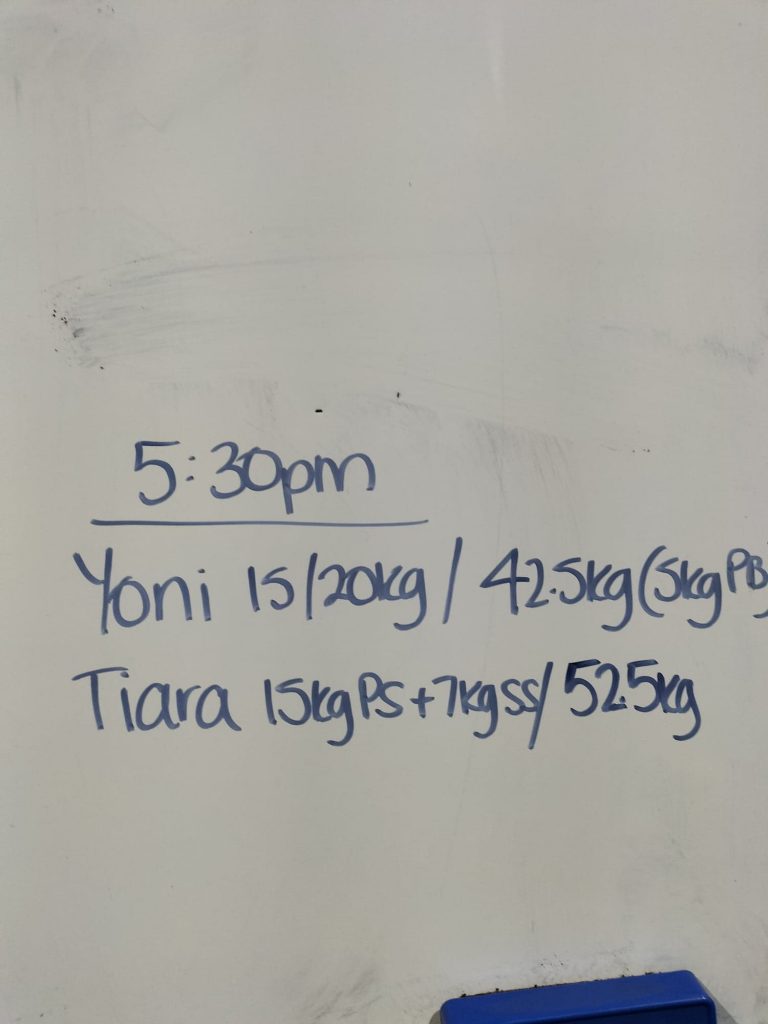 5:30pm
Yoni 15/20kg / 42.5kg (5kg PB)
Tiara 15kg PS + 7kg SS / 52.5kg